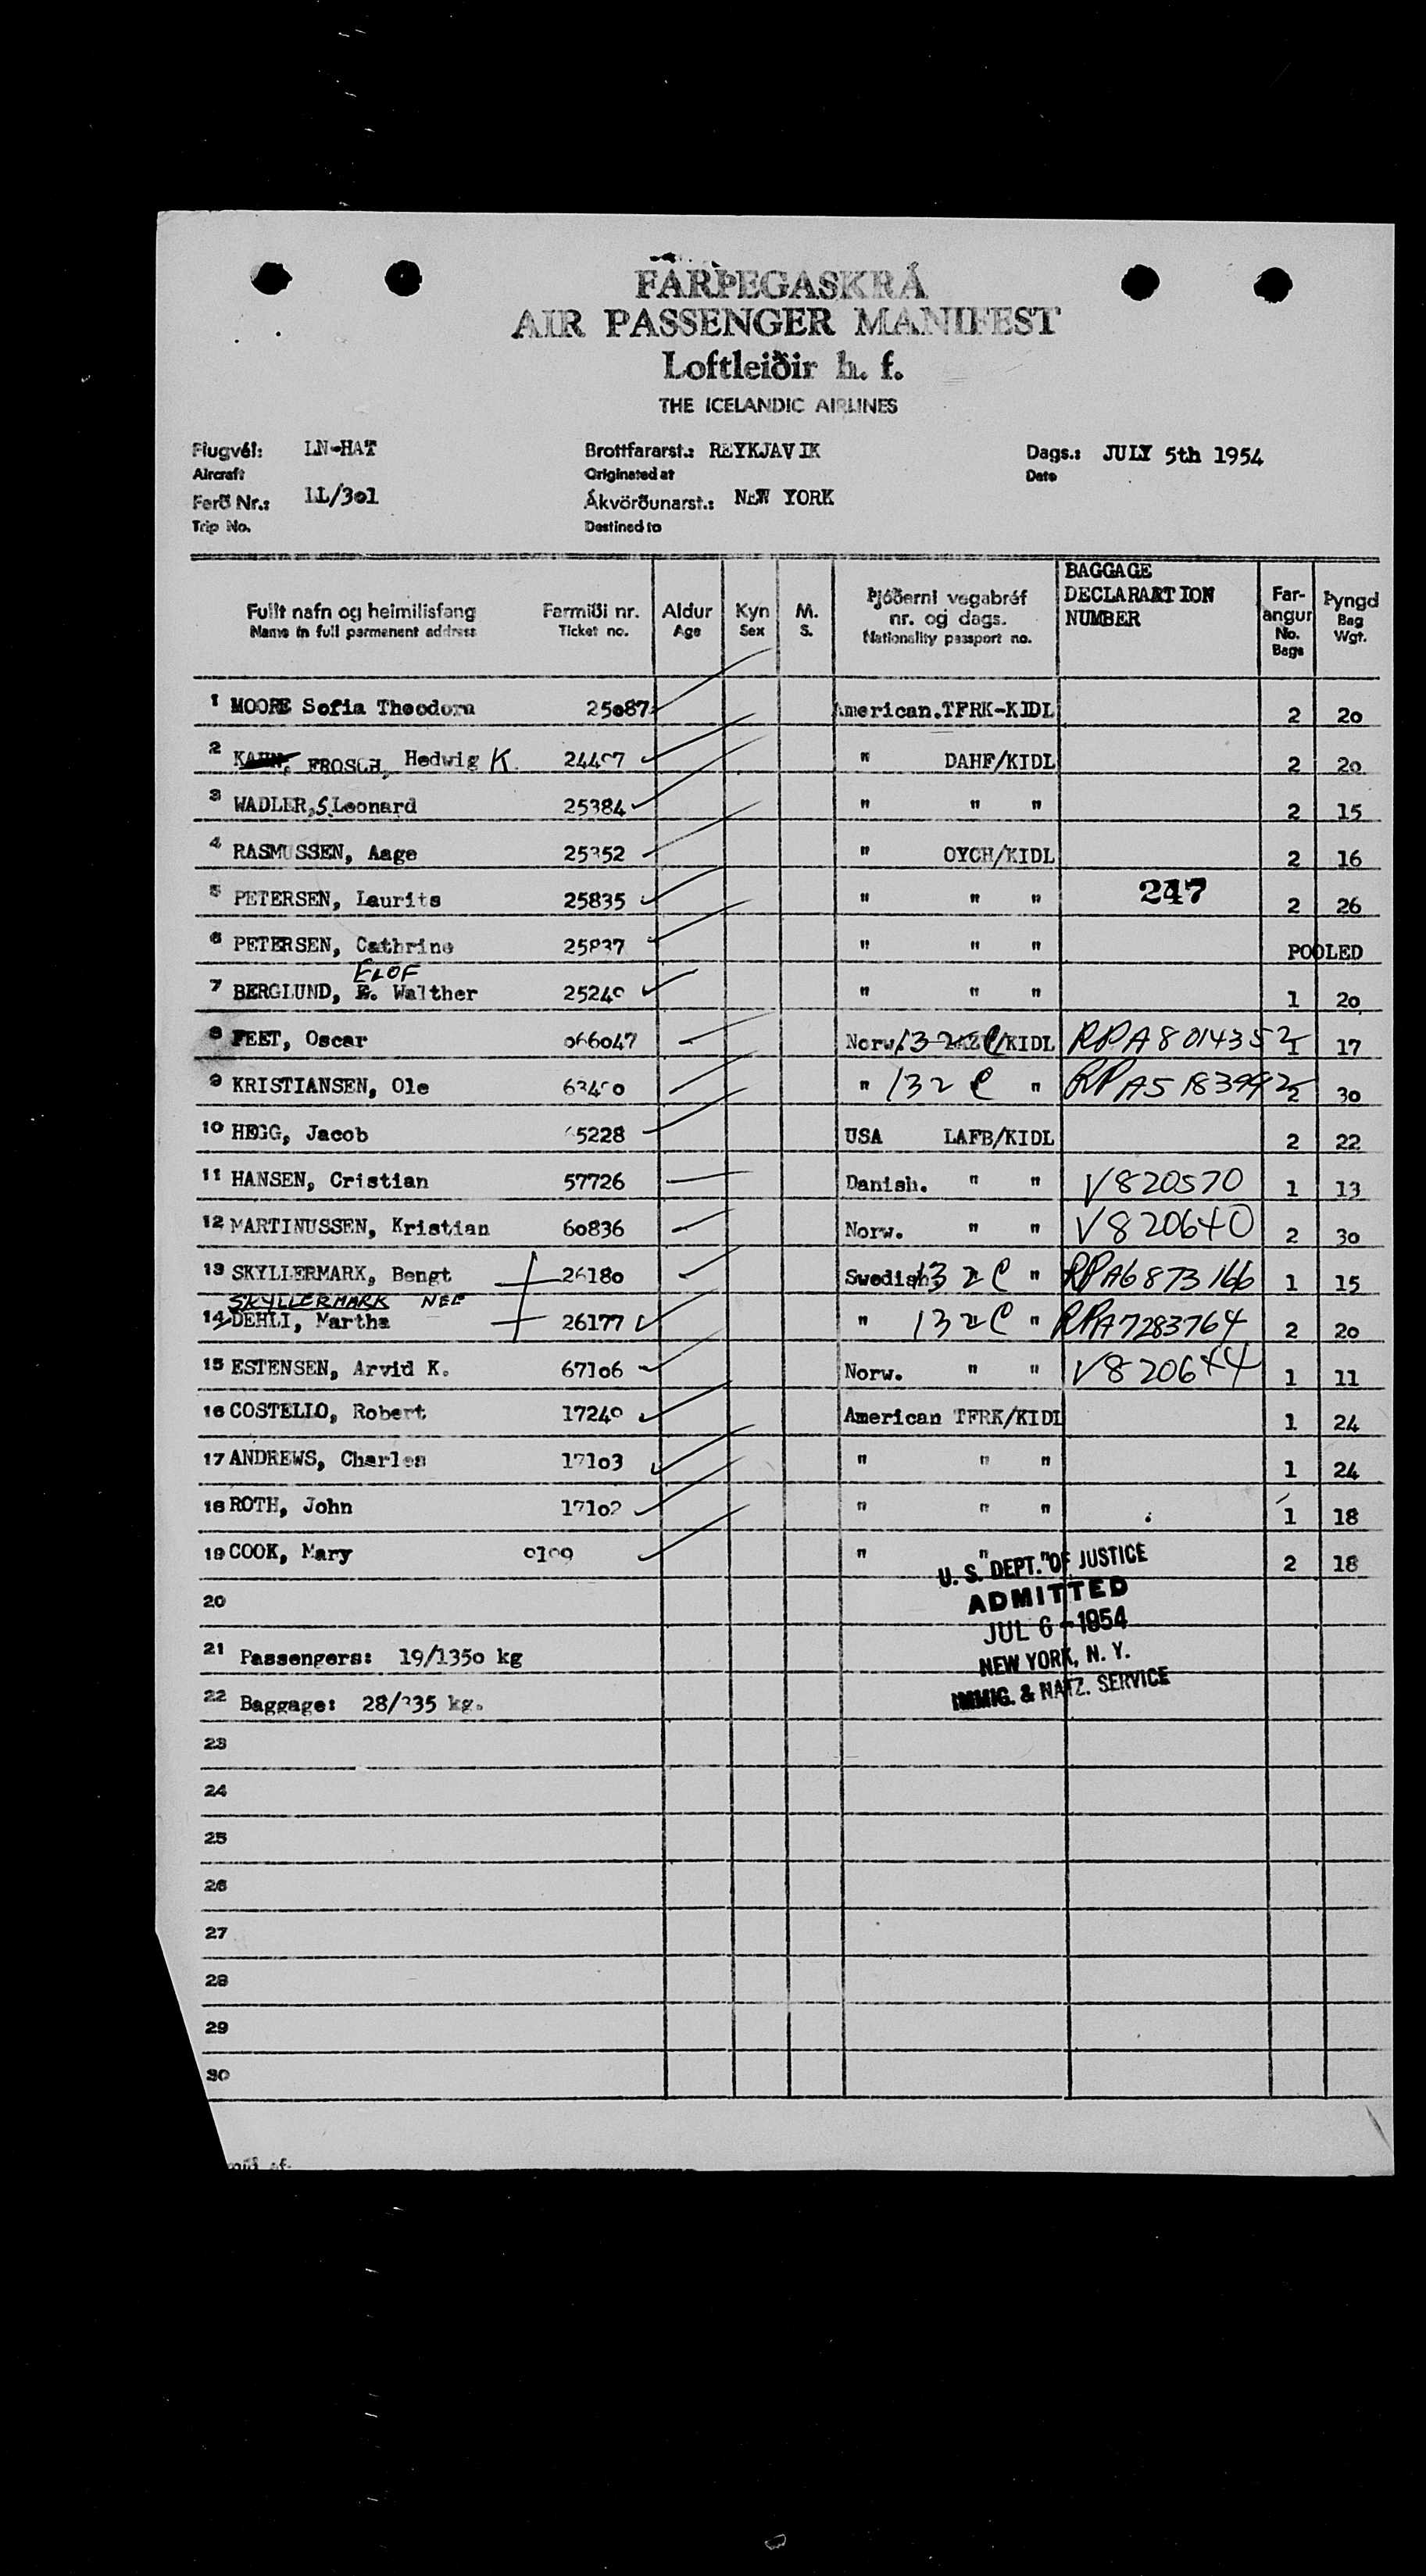 FARÞEGASKRÁ
AIR PASSENGER MANIFEST
Loftleiðir h. f.
THE ICELANDIC AIRLINES
Flugvél: LN-HAT Brottfararst.: REYKJAVIK Dags.: JULY 5th 1954
Aircraft Originated at Date
Ferð Nr.: LL/301 Ákvörðunarst.: NEW YORK
Trip No. Destined to
Fullt nafn og heimilisfang Farmiði nr. Aldur Kyn M. Þjóðerni vegabréf nr. og dags. BAGGAGE DECLARARTION NUMBER Far-angur Þyngd
Name in full permanent address Ticket no. Age Sex S. Nationality passport no. No. Bags Bag Wgt.
1 MOORE Sofia Theodora 25087 American.TFRK-KIDL 2 20
2 KAHN, FROSCH, Hedwig K. " DAHF/KIDL 2 20
3 WADLER, S. Leonard 25384 " " " 2 15
4 RASMUSSEN, Aage 25352 " OYCH/KIDL 2 16
5 PETERSEN, Laurits 25835 " " " 247 2 26
6 PETERSEN, Cathrine 25837 " " " POOLED
ELOF
7 BERGLUND, E. Walther " " " 1 20
8 FEET, Oscar 066047 Norw. 132 C/KIDL RPA801435 2 1 17
9 KRISTIANSEN, Ole " 132 C " 2 30
10 HEGG, Jacob 5228 USA LAFB/KIDL 2 22
11 HANSEN, Cristian 57726 Danish. " " V820570 1 13
12 MARTINUSSEN, Kristian 60836 Norw. " " V820640 2 30
13 SKYLLERMARK, Bengt 26180 Swedish 132 C " RPA6873166 1 15
SKYLLERMARK NEE
14 DEHLI, Martha 26177 " 132 C " RPA7283764 2 20
15 ESTENSEN, Arvid K. 67106 Norw. " " V820644 1 11
16 COSTELLO, Robert 17240 American TFRK/KIDL 1 24
17 ANDREWS, Charles 17103 " " " 1 24
18 ROTH, John 17102 " " " 1 18
19 COOK, Mary " " " 2 18
U. S. DEPT. OF JUSTICE
ADMITTED
20
JUL 6 - 1954
21 Passengers: 19/1350 kg
NEW YORK, N. Y.
IMMIG. & NATZ. SERVICE
22 Baggage: 28/335 kg.
23
24
25
26
27
28
29
30